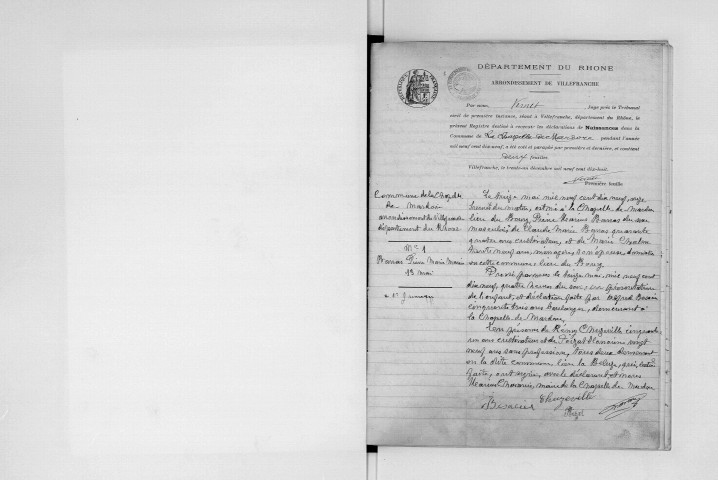 DÉPARTEMENT DU RHONE
ARRONDISSEMENT DE VILLEFRANCHE
Par nous, Juge près le Tribunal
civil de première instance, séant à Villefranche, département du Rhône, le
présent Registre destiné à recevoir les déclarations de Naissances dans la
Commune de La Chapelle de Mardore pendant l'année
mil neuf cent dix-neuf, a été coté et paraphé par première et dernière, et contient
deux feuillets
Villefranche, le trente-un décembre mil neuf cent dix-huit.
Première feuille
Commune de la Chapelle
de Mardore
arrondissement de Villefranche
département du Rhône
N° 1
Pierre Marie
13 mai
Le treize mai mil neuf cent dix neuf,
heures du matin, est né à la Chapelle de Mardore
lieu du Bourg, Pierre du sexe
masculin, de Claude Marie quarante
quatre ans cultivateur, et de Marie
trente neuf ans, ménagère, son épouse domiciliés
en cette commune, lieu du Bourg
Dressé par nous le treize mai, mil neuf cent
dix neuf, quatre heures du soir, sur présentation
de l'enfant, et déclaration faite par
cinquante trois ans boulanger, demeurant à
la Chapelle de Mardore,
En présence de Rémy cinquante
un ans cultivateur et de vingt
neuf ans sans profession, tous deux demeurant
en la dite commune, lieu la qui, lecture
faite, ont signé, avec le déclarant, et nous
maire de la Chapelle de Mardore